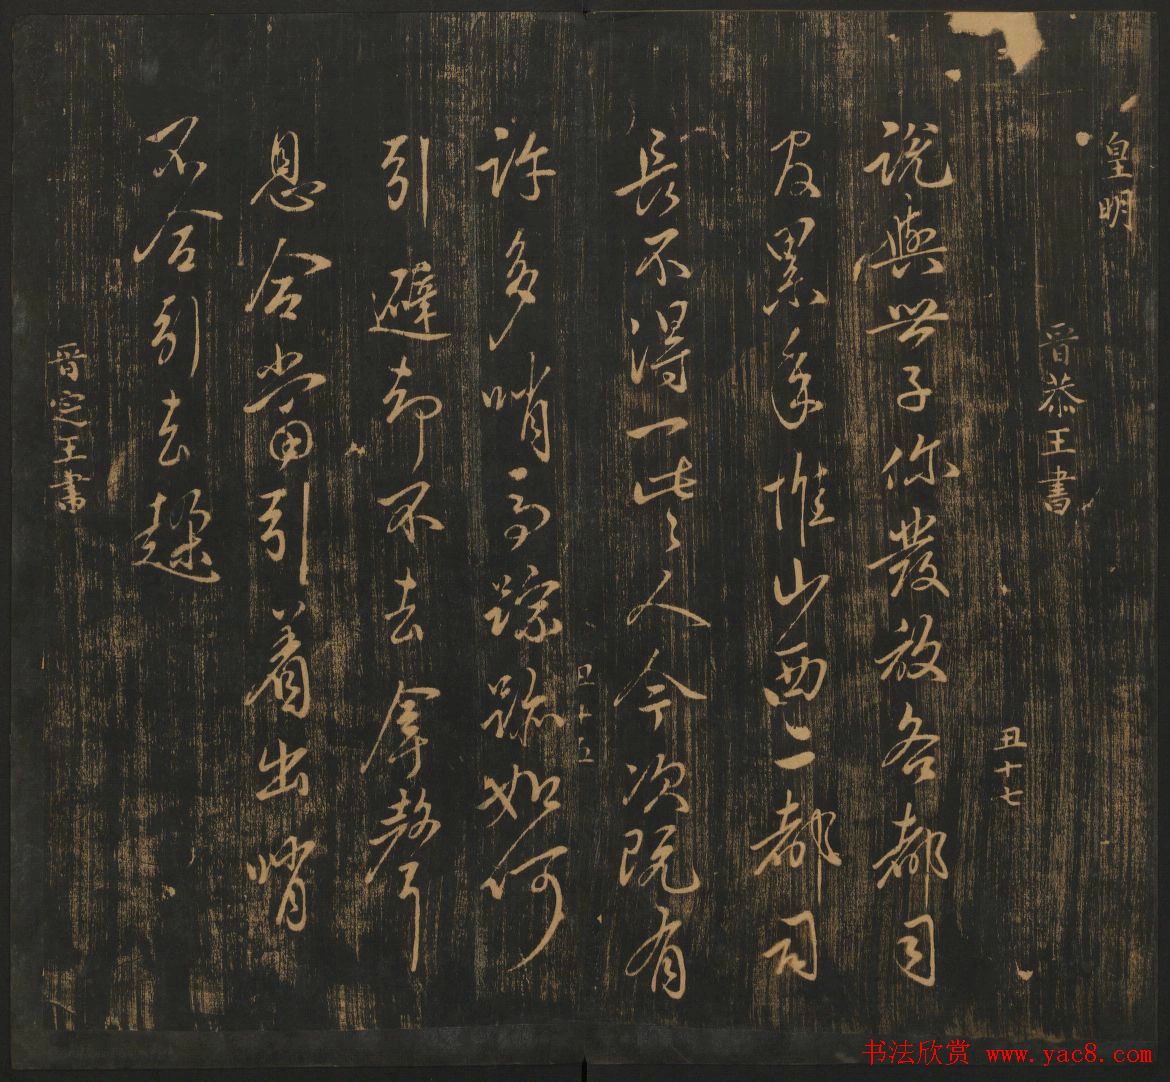 皇明
晉恭王書
丑十七
說與世子你發放各都司
官累年惟山西二都司
長不得一些人今次既有
許多哨馬蹤跡如何
引避却不去拿聲
息合當引着出哨
不合引去趕
晉定王書
丑十五
书法欣赏 www.yac8.com